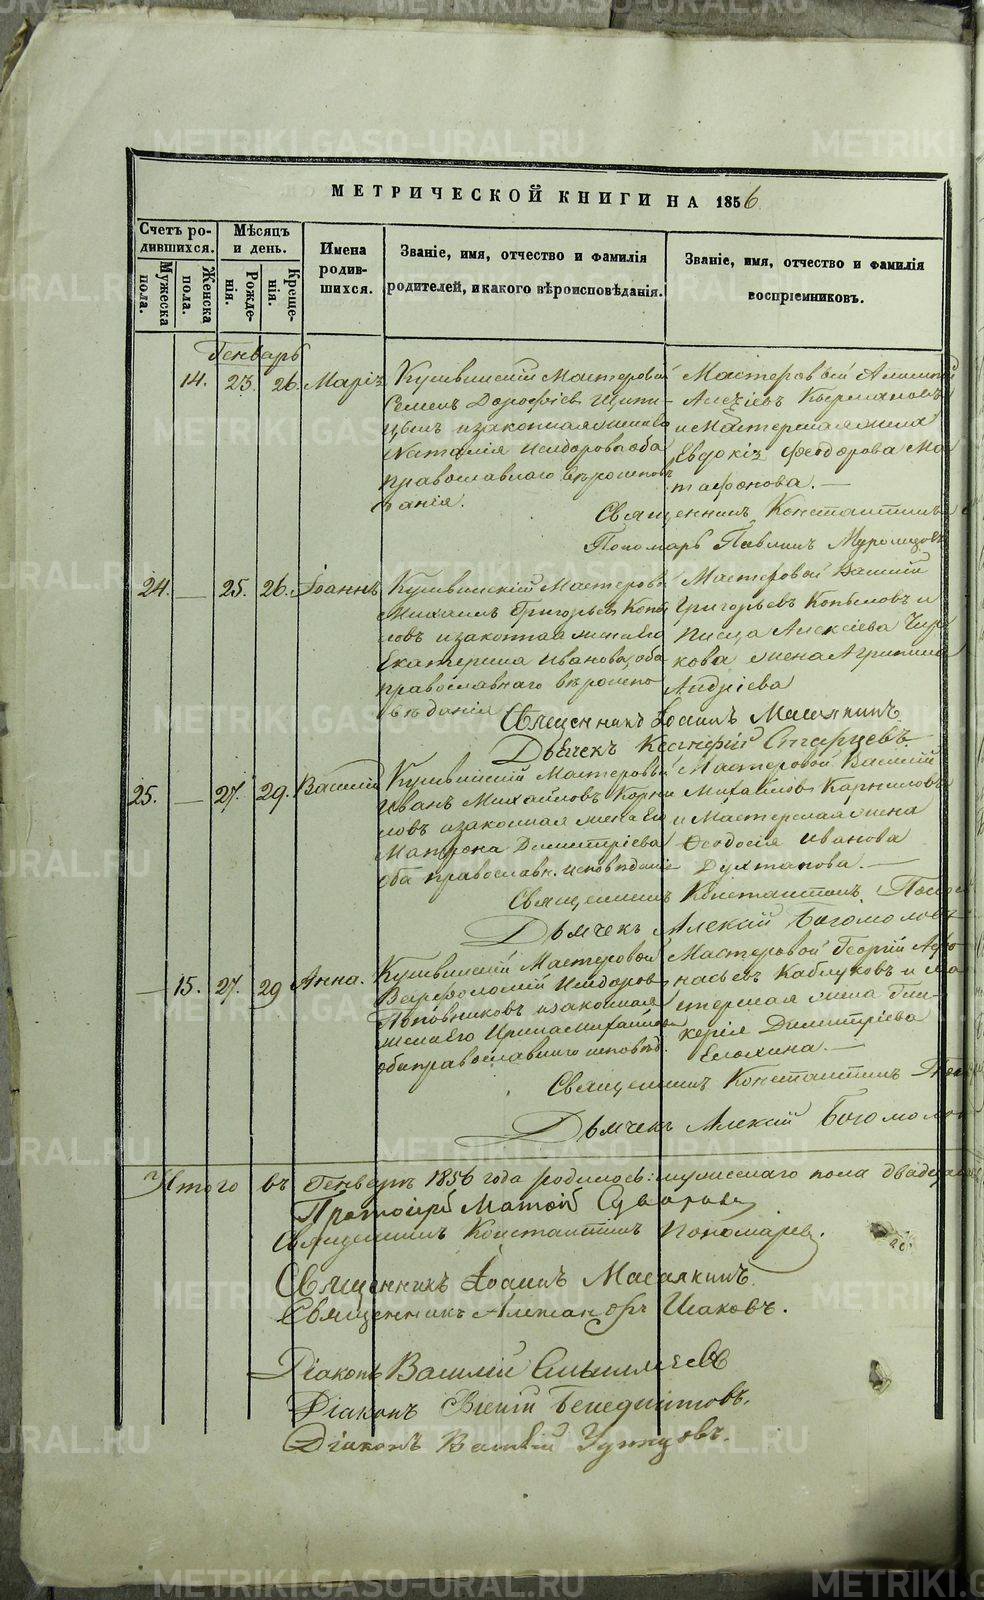 METRIKI.GASO-URAL.RU
МЕТРИЧЕСКОЙ КНИГИ НА 1856
Счетъ ро-
дившихся.
Мужеска
пола.
Женска
пола.
Мѣсяцъ
и день.
Рожде-
нія.
Креще-
нія.
Имена
родив-
шихся.
Званіе, имя, отчество и фамилія
родителей, и какого вѣроисповѣданія.
Званіе, имя, отчество и фамилія
воспріемниковъ.
Генварь
14. 23. 26. Марія
Кушвинскій Мастеровой
Семенъ Дорофѣевъ
и законная жена
Наталія Исидорова оба
православнаго вѣроисповѣ
данія.
Мастеровой
Алексѣевъ
и Мастерская жена
Евдокія Феодорова Ма
тафонова.
Священникъ Константинъ
Пономарь Павлинъ
24. — 25. 26. Іоаннъ
Кушвинскій Мастеров
Михаилъ Григорьевъ Копы
ловъ и законная жена Его
Екатерина Иванова, оба
православнаго вѣроиспо
вѣданія
Мастеровой Василій
Григорьевъ Копыловъ и
писца Алексѣева Чир
кова жена Агрипина
Андріева
Священникъ Іоаннъ Масалкинъ
Дьячекъ Старцевъ
25. — 27. 29. Василій
Кушвинскій Мастеровый
Иванъ Михайловъ Корни
ловъ и законная жена Его
Матрона Димитріева
оба православн. исповѣданія
Мастеровой Василій
Михайловъ Карниловъ
и Мастерская жена
Феодосія Иванова
Духтанова.
Священникъ Константинъ
Дьячекъ Алексій Богомоловъ
— 15. 27. 29 Анна.
Кушвинскій Мастеровой
Варфоломій Исидоров
и законная
жена Его Ирина Михайлова
оба православнаго исповѣд.
Мастеровой Георгій Афо
насьевъ Каблуковъ и Ма
стерская жена Гли-
керія Димитріева
Елохина.
Священникъ Константинъ
Дьячекъ Алексій Богомолов
Итого въ Генварѣ 1856 года родилось: мужескаго пола двадцать
Протоіерей Матѳій
Священникъ Константинъ Пономаревъ.
Священникъ Іоаннъ Масалкинъ.
Священникъ Александръ Исаковъ.
Діаконъ Василій
Діаконъ Бенедиктовъ.
Діаконъ Василій Удинцовъ.